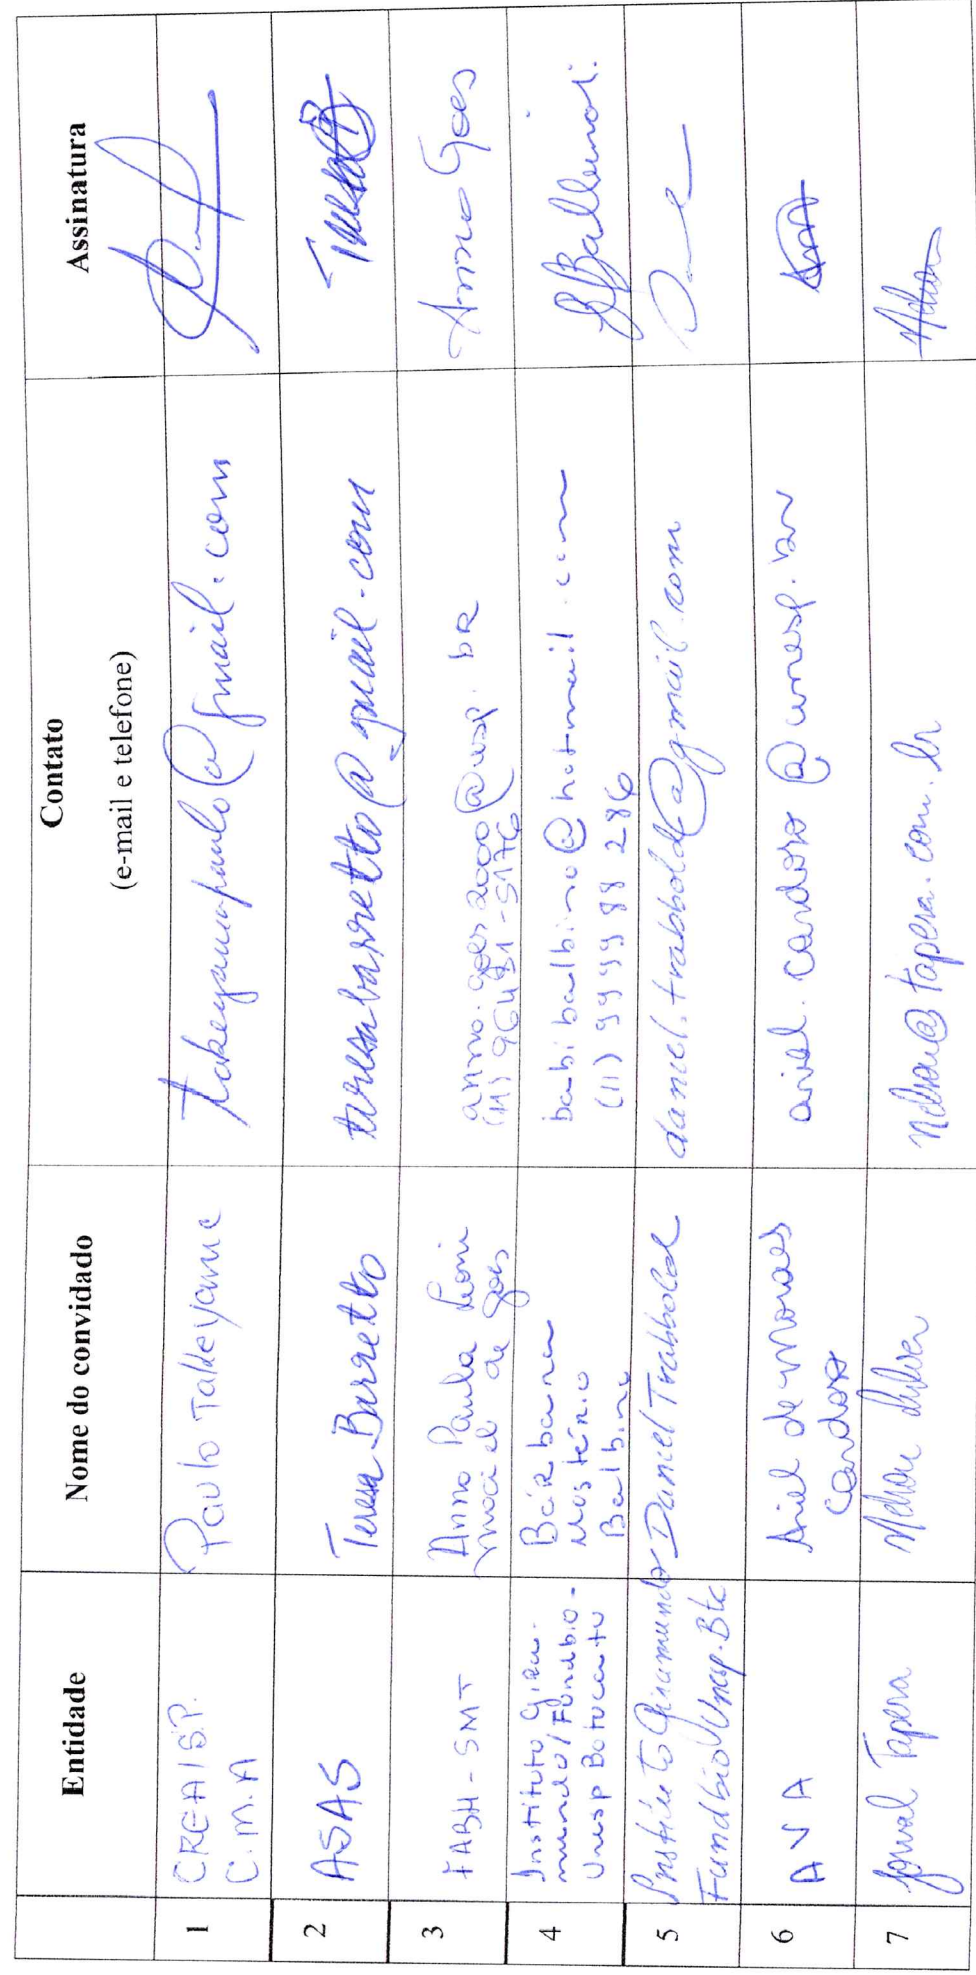 Entidade
Nome do convidado
Contato
(e-mail e telefone)
Assinatura
1
CREA/SP.
C.M.A
Paulo Takeyama
takeyamapaulo@gmail.com
2
ASAS
Teresa Barretto
teresabarretto@gmail.com
Teresa
3
FABH-SMT
Anna Paula Leoni
Maciel de Goes
anna.goes2000@usp.br
Anna Goes
4
Instituto Gira-
mundo/Fundbio-
Unesp Botucatu
Bárbara
Mostério
Balbino
babibalbino@hotmail.com
(11) 9999 88 286
5
Instituto Giramundo
Fundbio/Unesp.Btc
Daniel Trabbold
daniel.trabbold@gmail.com
6
AVA
Ariel de Moraes
Cardoso
ariel.cardoso@unesp.br
7
Jornal Tapera
Nelson
nelson@tapera.com.br
Nelson